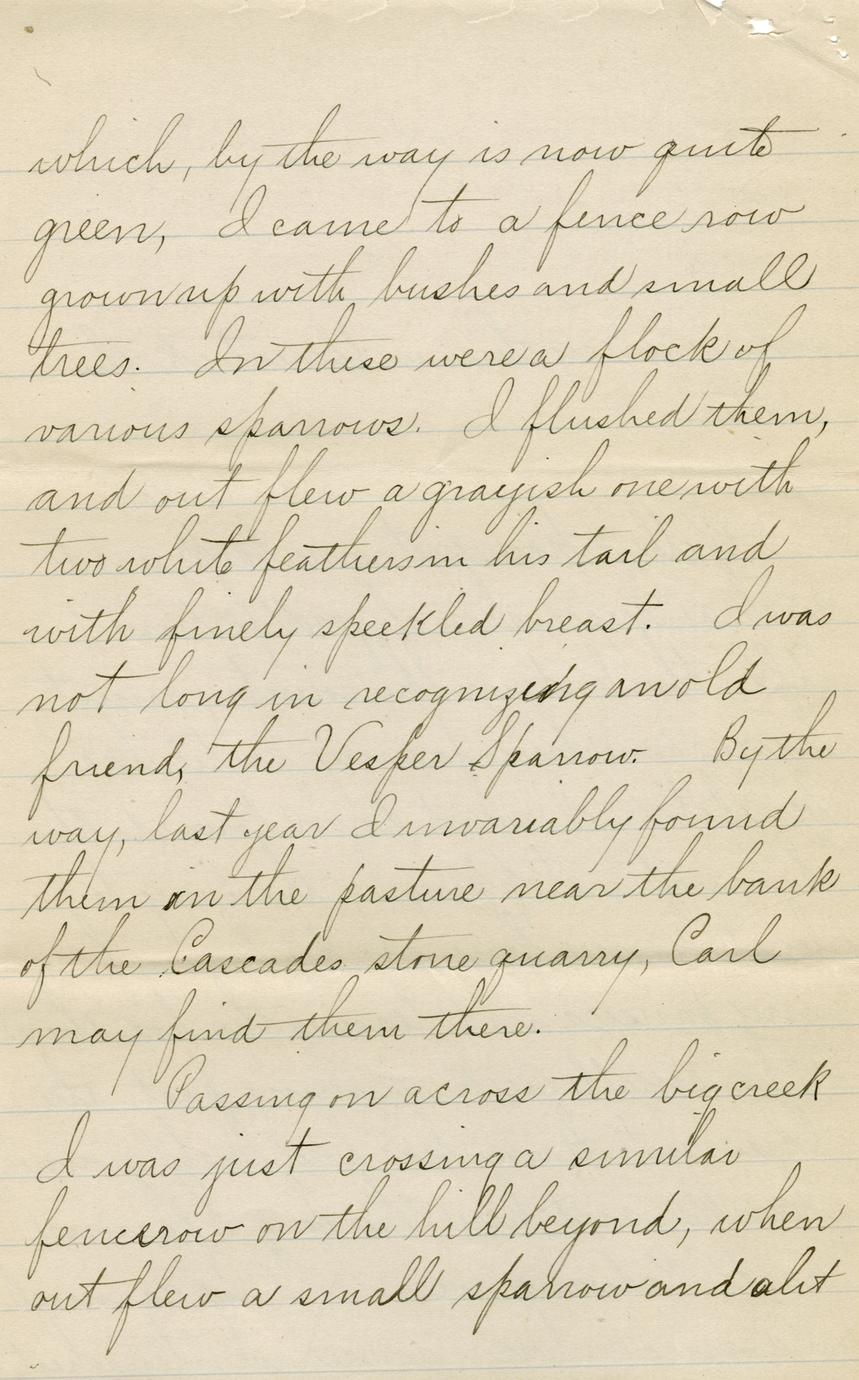 which, by the way is now quite
green, I came to a fence row
grown up with bushes and small
trees. In these were a flock of
various sparrows. I flushed them,
and out flew a grayish one with
two white feathers in his tail and
with finely speckled breast. I was
not long in recognizing an old
friend, the Vesper Sparrow. By the
way, last year I invariably found
them in the pasture near the bank
of the Cascades stone quarry, Carl
may find them there.
Passing on across the big creek
I was just crossing a similar
fencerow on the hill beyond, when
out flew a small sparrow and alit